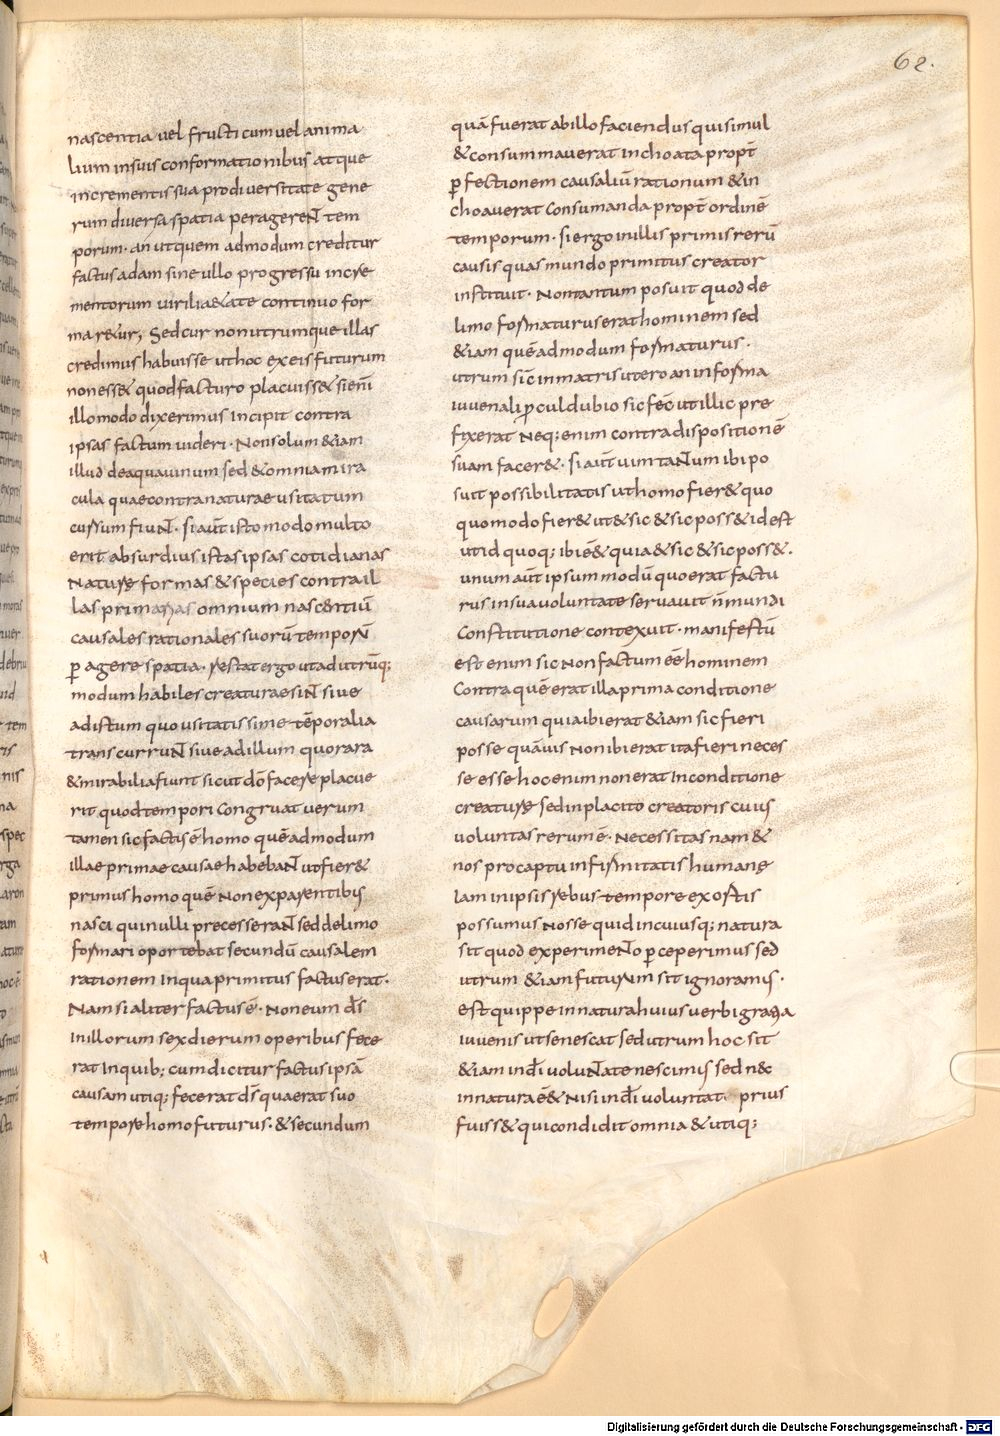 62.
nascentia uel fructicum uel anima
lium in suis conformationibus atque
incrementis sua pro diuersitate gene
rum diuersa spatia peragereNt tem
porum · an ut quem admodum creditur
factus adam sine ullo progressu incre
mentorum uirili aetate continuo for
mar&ur; Sed cur non utrumque illas
credimus habuisse ut hoc ex eis futurum
non ess& quod facturo placuiss& si eni̅
illo modo dixerimus Incipit contra
ipsas factum uideri · Non solum &iam
illud de aqua uinum sed & omnia mira
cula quae contra naturae usitatum
cursum fiuNt · si aut̅ isto modo multo
erit absurdius istas ipsas cotidianas
Naturę formas & species contra il
las primarias omnium nascentiu̅
causales rationales suoru̅ temporu̅
p̲agere spatia · restat ergo ut ad utru̅q;
modum habiles creatae siNt siue
ad istum quo usitatissime te̅poralia
transcurruNt siue ad illum quo rara
& mirabilia fiunt sicut do̅ facere placue
rit quod tempori Congruat uerum
tamen sic factus e̅ homo que̅admodum
illae primae causae habebaNt ut fier&
primus homo que̅ Non ex parentibus
nasci qui nulli precesseraNt sed de limo
formari oportebat secundu̅ causalem
rationem In qua primitus factus erat ·
Nam si aliter factus e̅ · Non eum ds̅
In illorum sex dierum operibus fece
rat In quib; cum dicitur factus ipsa̅
causam utiq; fecerat ds̅ qua erat suo
tempore homo futurus · & secundum
qua̅ fuerat ab illo faciendus qui simul
& consummauerat inchoata propt̅
p̲fectionem causaliu̅ rationum & in
choauerat Consumanda propt̅ ordine̅
temporum · si ergo in illis primis reru̅
causis quas mundo primitus creator
instituit · Non tantum posuit quod de
limo formaturus erat hominem sed
&iam que̅admodum formaturus ·
utrum sic̅ in matris utero an in forma
iuuenali p̲cul dubio sic fec̅ ut illic pre
fixerat Neq; enim contra dispositione̅
suam facer& · si aut̅ uim taNtum ibi po
suit possibilitatis ut homo fier& quo
quomodo fier& ut & sic & sic poss& id est
ut id quoq; ibi e̅& quia & sic & sic poss& ·
unum aut̅ ipsum modu̅ quo erat factu
rus in sua uoluntate seruauit n̅ mundi
Constitutione contexuit · manifestu̅
est enim sic Non factum e̅e hominem
Contra que̅ erat illa prima conditione
causarum quia ibi erat &iam sic fieri
posse qua̅uis Non ibi erat ita fieri neces
se esse hoc enim non erat In conditione
creaturę sed in placito creatoris cuius
uoluntas rerum e̅ · Necessitas nam &
nos pro captu infirmitatis humanę
Iam in ipsis rebus tempore exortis
possumus Nosse quid in cuiusq; natura
sit quod experimeNto p̲ceperimus sed
utrum &iam futurum sit ignoramus ·
est quippe in natura huius uerbi gratia
iuuenis ut senescat sed utrum hoc sit
&iam in di̅ uoluNtate nescimus sed nec
in natura e̅& Nisi in di̅ uoluntat · prius
fuiss& qui condidit omnia & utiq;
Digitalisierung gefördert durch die Deutsche Forschungsgemeinschaft - DFG